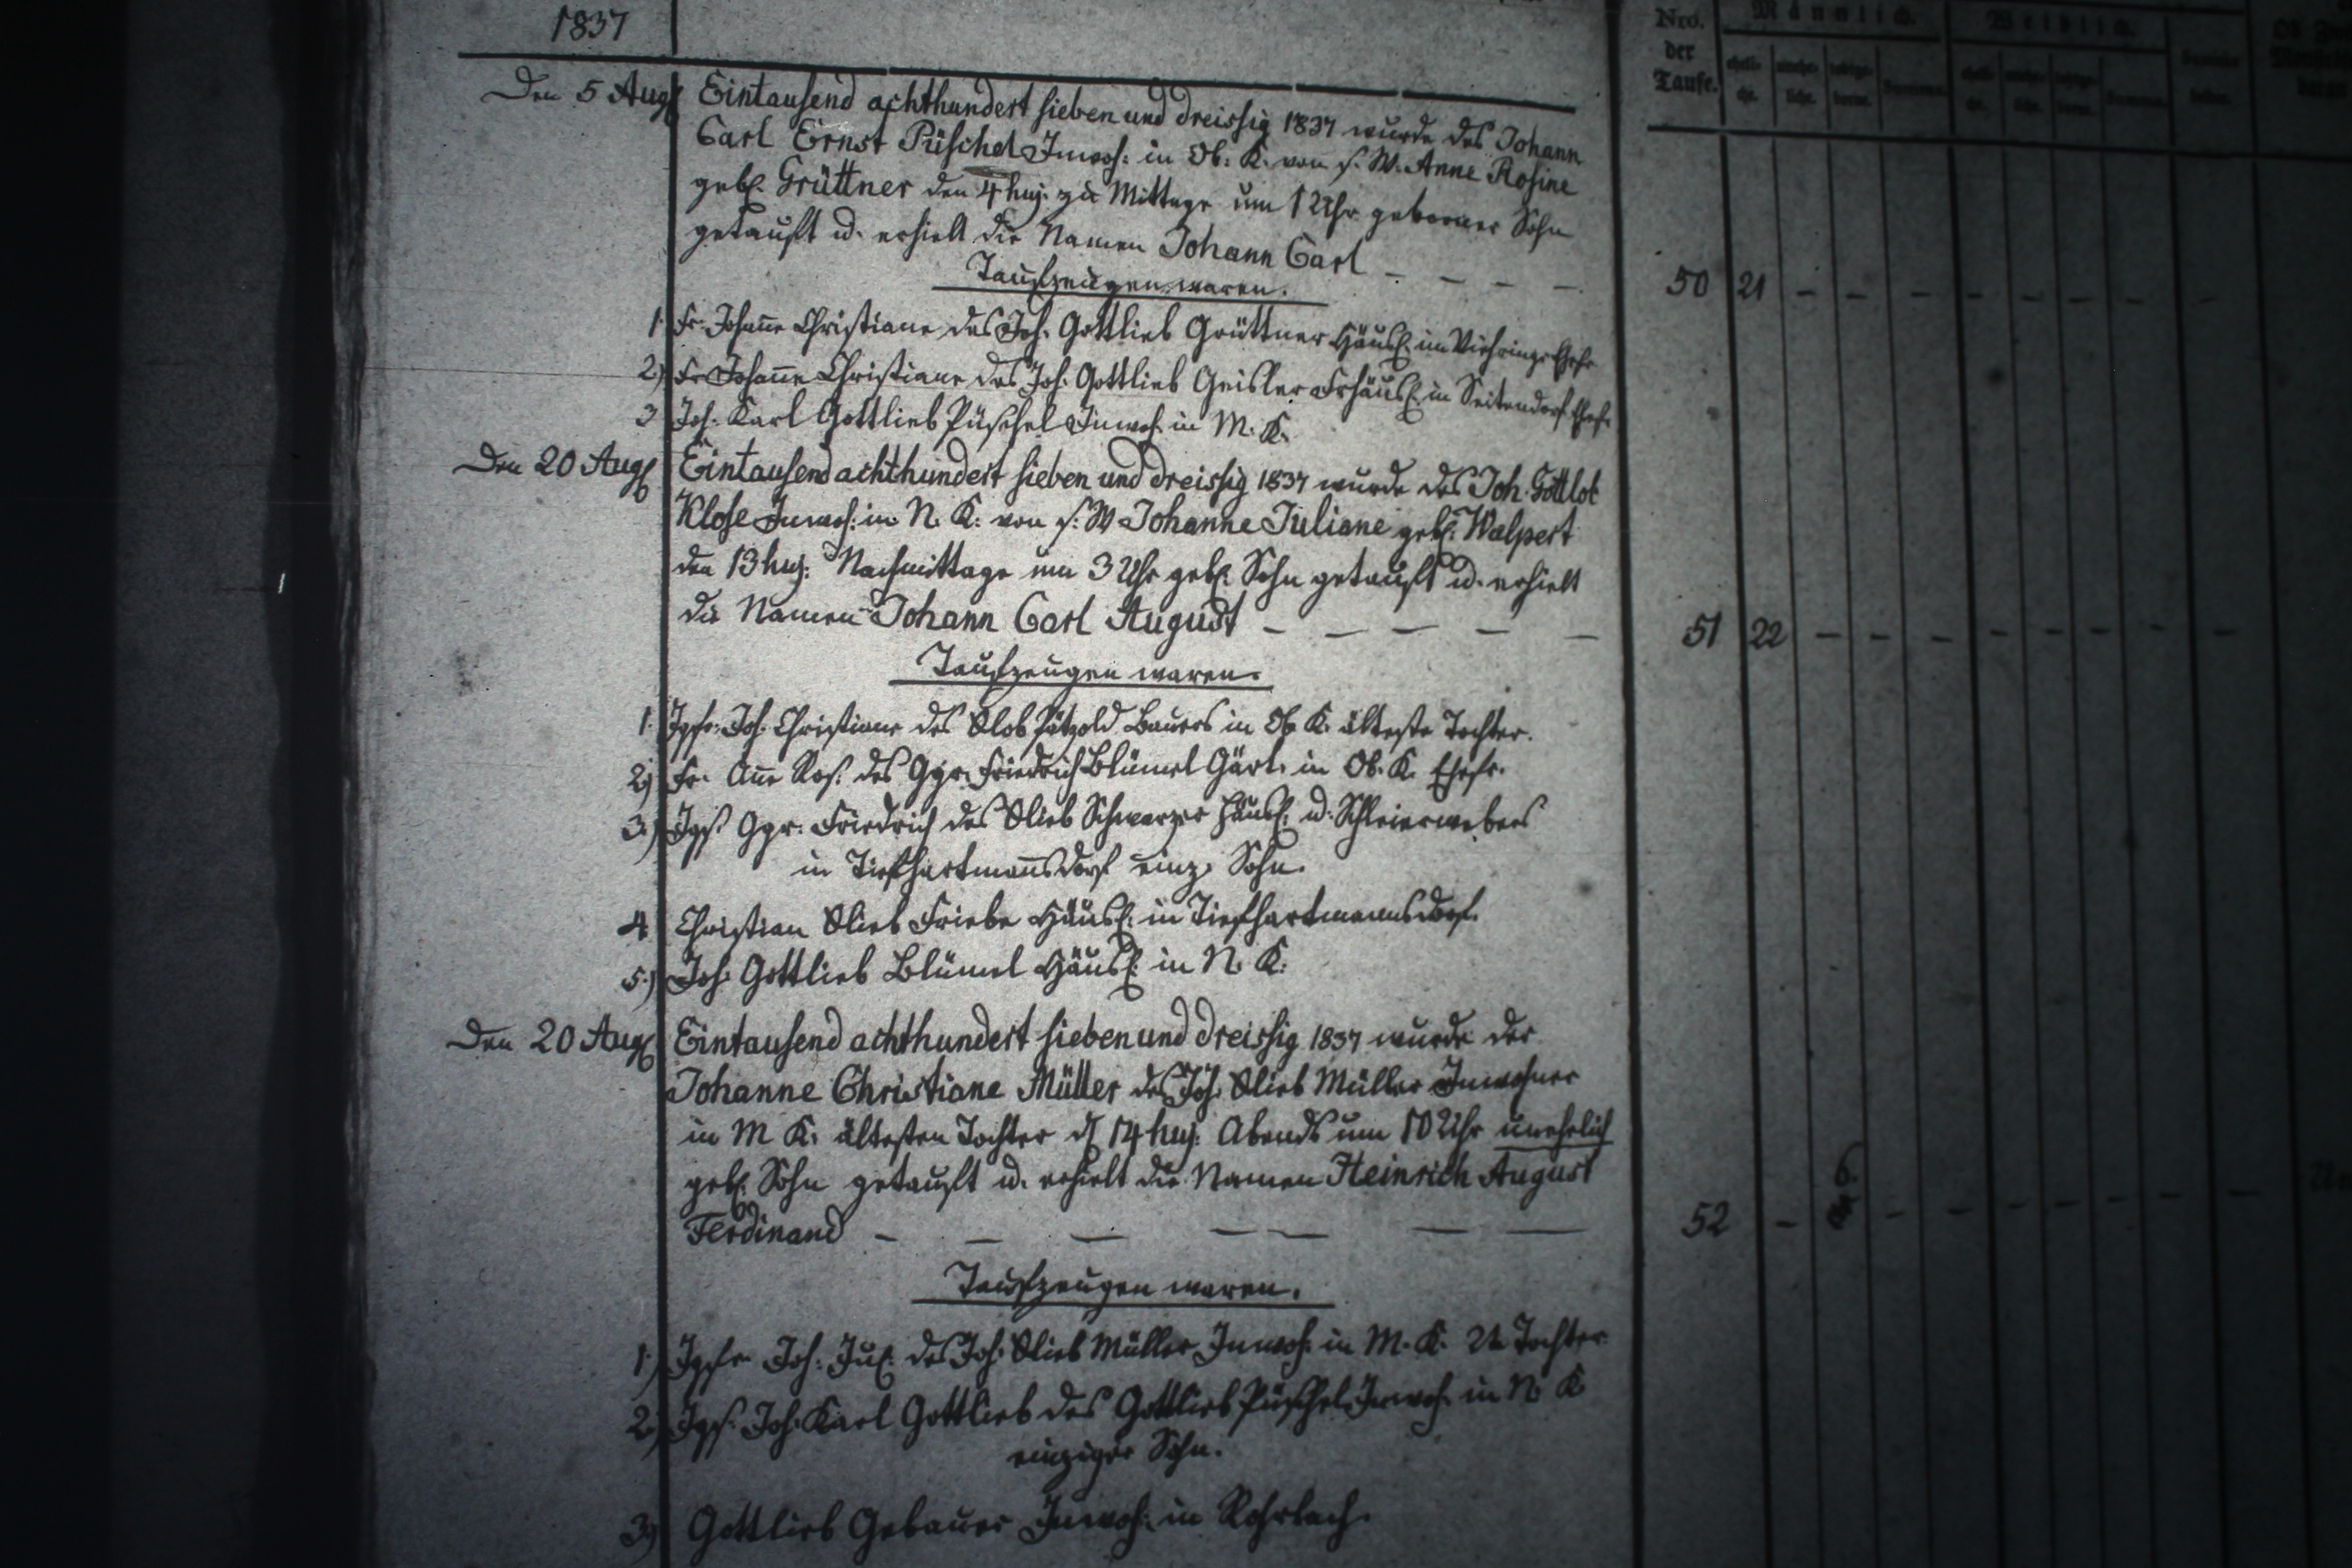 1837
Nro. der Taufe.
Männlich.
Weiblich.
Den 5 Aug. Eintausend achthundert sieben und dreissig 1837 wurde des Johann
Carl Ernst Püschel Inwoh: in Ob: K. von s. W. Anne Rosine
geb. Grüttner den 4 huj. zu Mittage um 1 Uhr geborner Sohn
getauft u. erhielt die Namen Johann Carl — — — —
Taufzeugen waren.
1. Fr. Johañe Christiane des Joh. Gottlieb Grüttner Häusl. im Ehefr.
2) Fr. Johañe Christiane des Joh. Gottlieb Geisler Frhäusl. in Seitendorf Ehefr.
3 Joh. Karl Gottlieb Püschel Inwoh. in M. K.
50 21 — — — — — — — —
Den 20 Aug. Eintausend achthundert sieben und dreissig 1837 wurde des Joh. Gottlob
Klose Inwoh: in N. K: von s. W Johanne Juliane geb. Walpert
den 13 huj: Nachmittage um 3 Uhr geb. Sohn getauft u. erhielt
die Namen Johann Carl August — — — — —
51 22 — — — — — — — —
Taufzeugen waren.
1. Jgfr. Joh. Christiane des Glob Pätzold Bauers in Ob K. älteste Tochter.
2) Fr. Añe Ros. des Ggr. Friedrich Blümel Gärt. in Ob. K. Ehefr.
3.) Jgs. Ggr. Friedrich des Glieb Schwarzer Häusl. u. Schleierwebers
in Tiefhartmañsdorf einz. Sohn.
4 Christian Glieb Friebe Häusl. in Tiefhartmannsdorf.
5.) Joh. Gottlieb Blümel Häusl. in N. K.
Den 20 Aug. Eintausend achthundert sieben und dreissig 1837 wurde der
Johanne Christiane Müller des Joh. Glieb Müller Inwohner
in M K. ältesten Tochter d. 14 huj: Abends um 10 Uhr unehelich
geb. Sohn getauft u. erhielt die Namen Heinrich August
Ferdinand — — — — — — —
52 — 6. — — — — — — —
Taufzeugen waren.
1.) Jgfr. Joh: Jul. des Joh. Glieb Müller Inwoh. in M. K. 2te Tochter
2.) Jgs. Joh. Karl Gottlieb des Gottlieb Püschel Inwoh. in N. K
einziger Sohn.
3) Gottlieb Gebauer Inwoh: in Rohrlach.